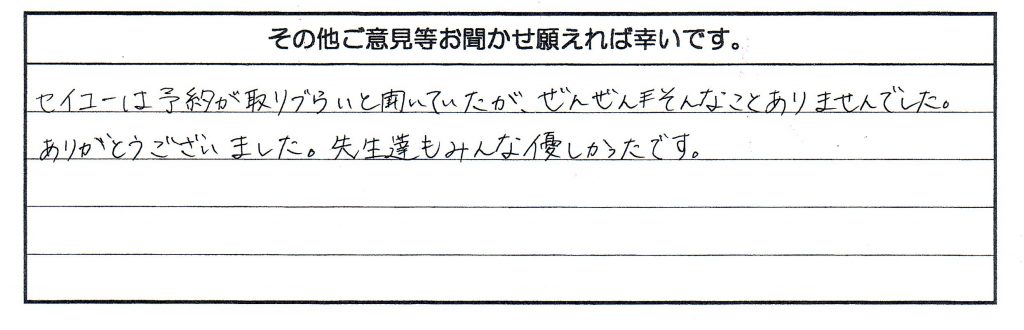 その他ご意見等お聞かせ願えれば幸いです。
セイユーは予約が取りづらいと聞いていたが、ぜんぜんそんなことありませんでした。
ありがとうございました。先生達もみんな優しかったです。